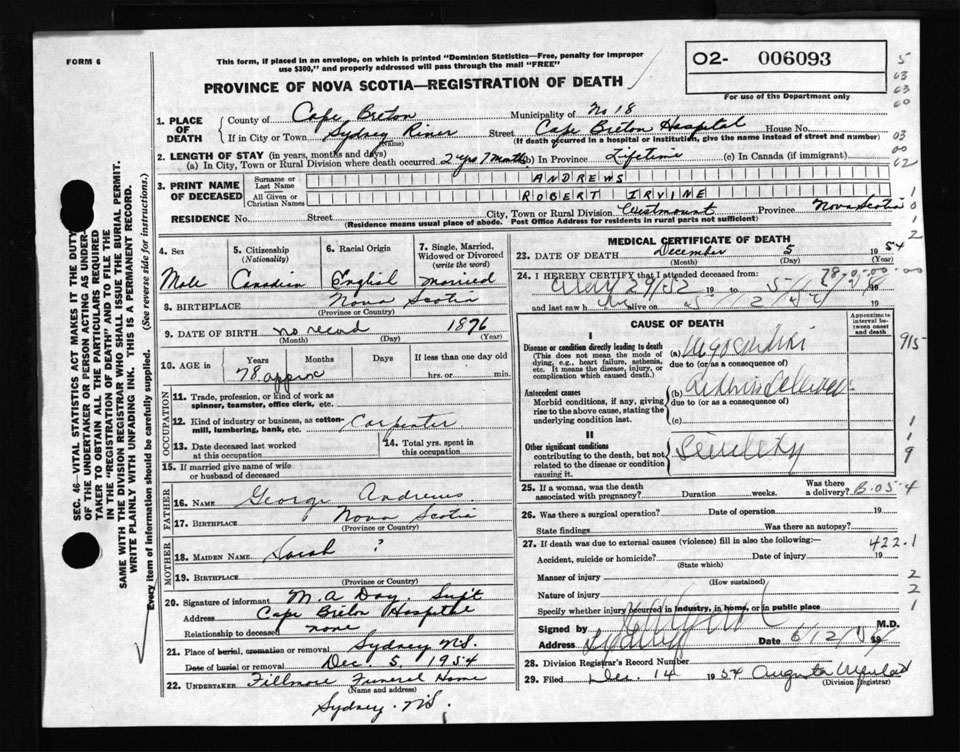 FORM 6
This form, if placed in an envelope, on which is printed "Dominion Statistics—Free, penalty for improper
use $300," and properly addressed will pass through the mail "FREE"
O2- 006093
For use of the Department only
PROVINCE OF NOVA SCOTIA—REGISTRATION OF DEATH
1. PLACE OF DEATH
County of Cape Breton Municipality of No 18
If in City or Town Sydney River Street Cape Breton Hospital House No.
(Name) (If death occurred in a hospital or institution, give the name instead of street and number)
2. LENGTH OF STAY (in years, months and days)
(a) In City, Town or Rural Division where death occurred 2 yrs 7 months (b) In Province Lifetime (c) In Canada (if immigrant)
3. PRINT NAME OF DECEASED
Surname or Last Name ANDREWS
All Given or Christian Names ROBERT IRVINE
RESIDENCE No. Street City, Town or Rural Division Westmount Province Nova Scotia
(Residence means usual place of abode. Post Office Address for Residents in rural parts not sufficient)
4. Sex Male
5. Citizenship (Nationality) Canadian
6. Racial Origin English
7. Single, Married, Widowed or Divorced (write the word) Married
8. BIRTHPLACE Nova Scotia
(Province or Country)
9. DATE OF BIRTH no record 1876
(Month) (Day) (Year)
10. AGE in Years Months Days If less than one day old
78 approx hrs. or min.
OCCUPATION
11. Trade, profession, or kind of work as
spinner, teamster, office clerk, etc.
12. Kind of industry or business, as cotton-
mill, lumbering, bank, etc. Carpenter
13. Date deceased last worked
at this occupation
14. Total yrs. spent in
this occupation
15. If married give name of wife
or husband of deceased
FATHER
16. NAME George Andrews
17. BIRTHPLACE Nova Scotia
(Province or Country)
MOTHER
18. MAIDEN NAME. Sarah ?
19. BIRTHPLACE
(Province or Country)
20. Signature of informant M. A Day. Supt
Address Cape Breton Hospital
Relationship to deceased none
21. Place of burial, cremation or removal Sydney N.S.
Date of burial or removal Dec 5, 1954
22. UNDERTAKER Fillmore Funeral Home
(Name and address)
Sydney. N.S.
MEDICAL CERTIFICATE OF DEATH
23. DATE OF DEATH December 5 1954
(Month) (Day) (Year)
24. I HEREBY CERTIFY that I attended deceased from:
29/52 19 to 19
and last saw h alive on 19
CAUSE OF DEATH
Approximate interval between onset and death
I
Disease or condition directly leading to death
(This does not mean the mode of
dying, e.g., heart failure, asthenia,
etc. It means the disease, injury, or
complication which caused death.)
(a)
due to (or as a consequence of)
Antecedent causes
Morbid conditions, if any, giving
rise to the above cause, stating the
underlying condition last.
(b)
due to (or as a consequence of)
(c)
II
Other significant conditions
contributing to the death, but not
related to the disease or condition
causing it.
Senility
25. If a woman, was the death
associated with pregnancy? Duration weeks. Was there
a delivery? B.05-4
26. Was there a surgical operation? Date of operation 19
State findings Was there an autopsy?
27. If death was due to external causes (violence) fill in also the following:—
422.1
Accident, suicide or homicide? Date of injury 19
(State which)
Manner of injury
(How sustained)
Nature of injury
Specify whether injury occurred in industry, in home, or in public place
Signed by M.D.
Address Sydney Date 6/12/54 19
28. Division Registrar's Record Number
29. Filed Dec. 14 1954 Augusta
(Division Registrar)
SEC. 46—VITAL STATISTICS ACT MAKES IT THE DUTY
OF THE UNDERTAKER OR PERSON ACTING AS UNDER-
TAKER TO OBTAIN ALL THE PARTICULARS REQUIRED
IN THE "REGISTRATION OF DEATH" AND TO FILE THE
SAME WITH THE DIVISION REGISTRAR WHO SHALL ISSUE THE BURIAL PERMIT.
WRITE PLAINLY WITH UNFADING INK. THIS IS A PERMANENT RECORD.
Every item of information should be carefully supplied. (See reverse side for instructions.)
5
63
63
60
03
00
62
1
0
1
2
915
1
1
9
2
2
1